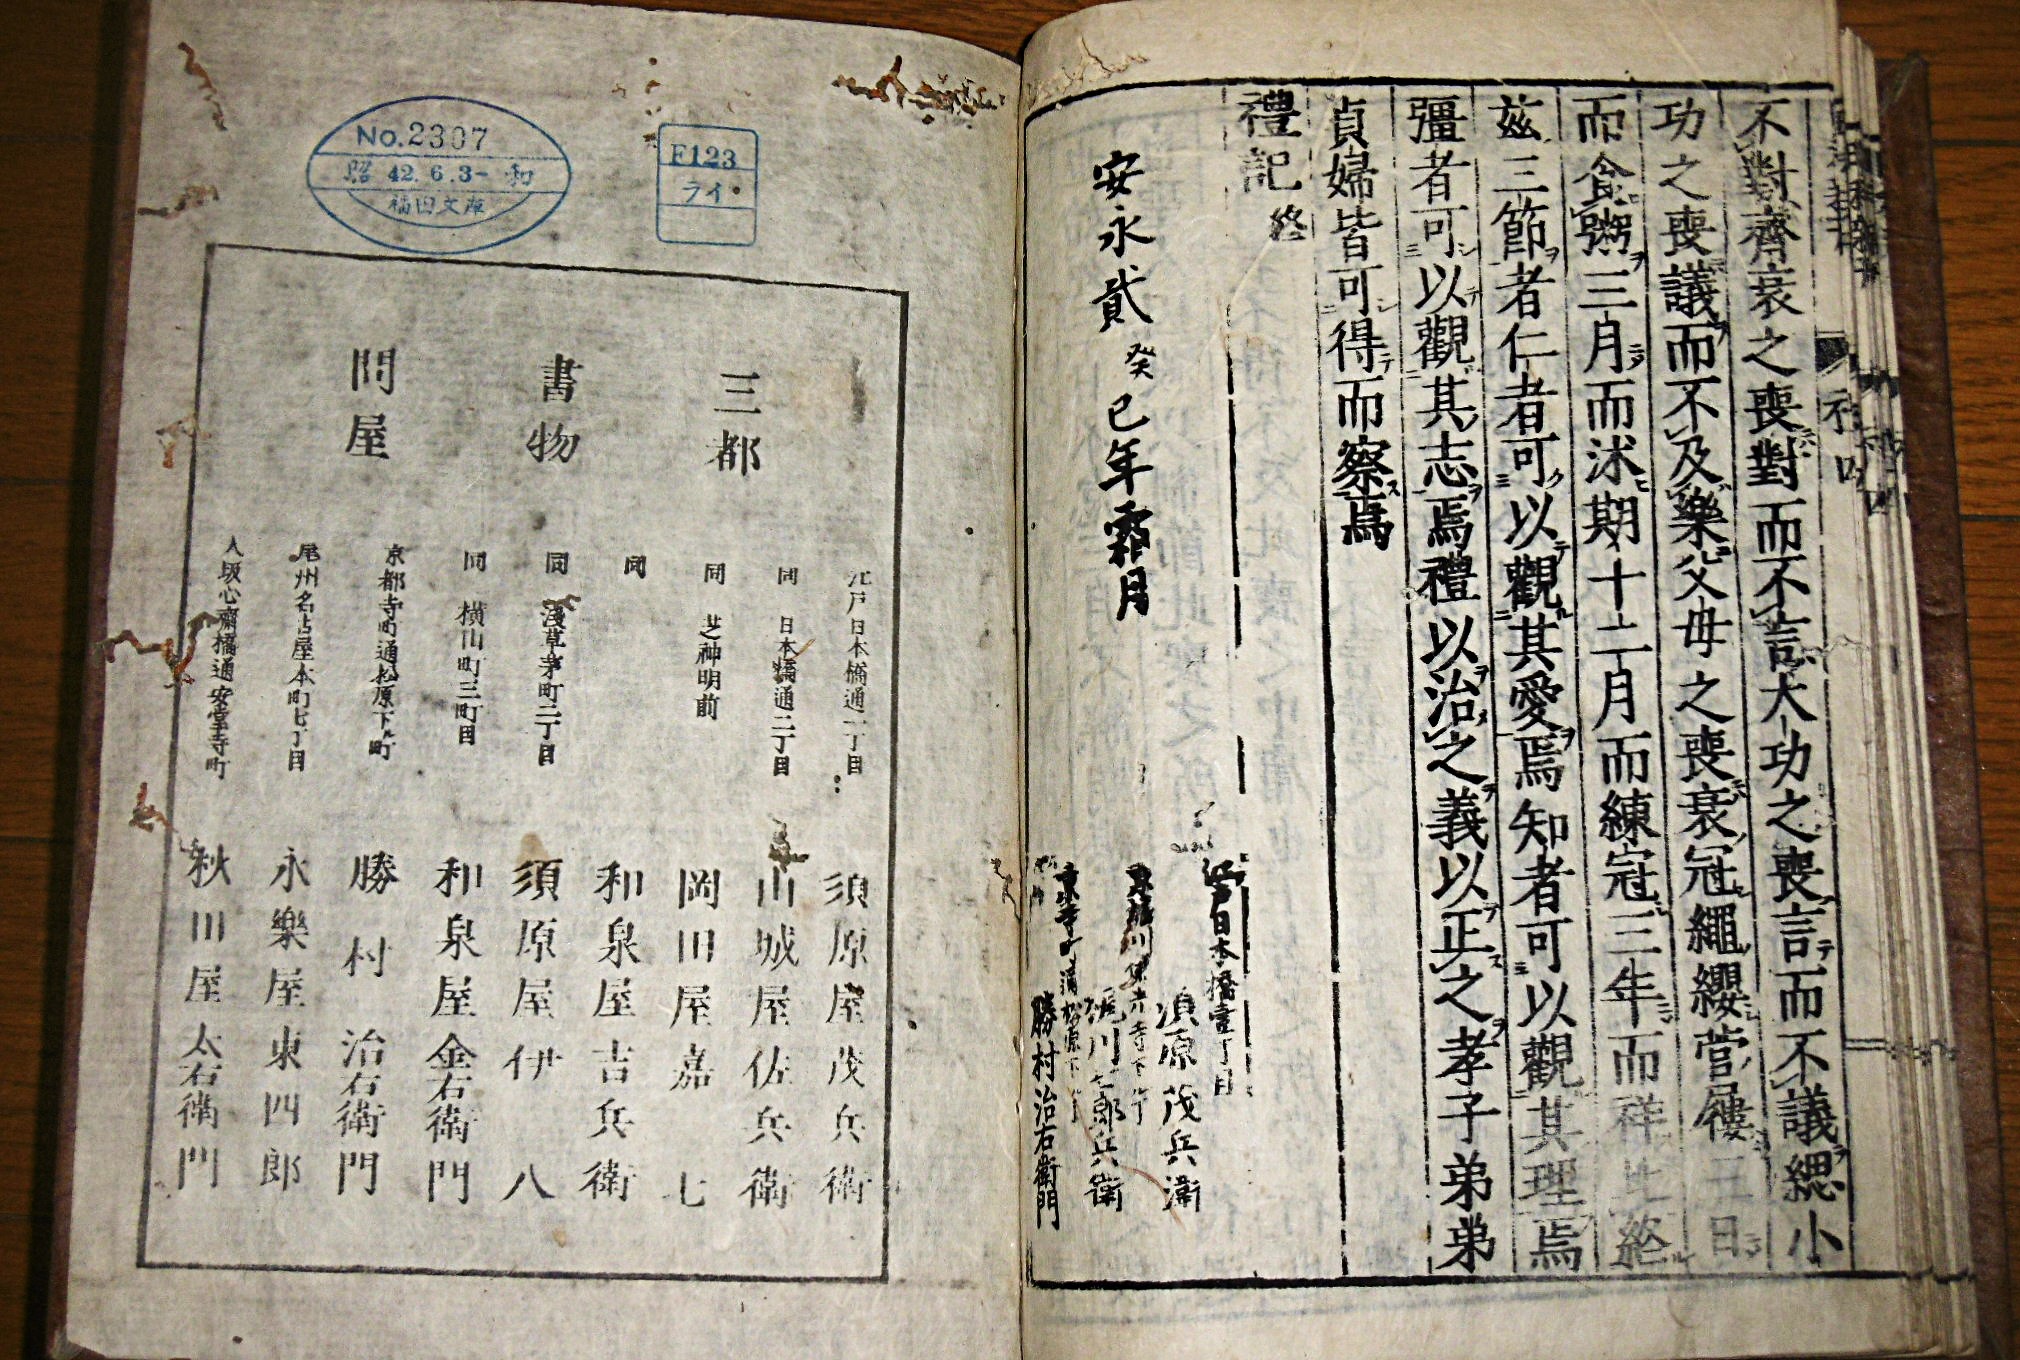 不對齊衰之喪對而不言大功之喪言而不議緦小
功之喪議而不及樂父母之喪衰冠繩纓菅屨三日
而食粥三月而沐期十二月而練冠三年而祥比終
茲三節者仁者可以觀其愛焉知者可以觀其理焉
彊者可以觀其志焉禮以治之義以正之孝子弟弟
貞婦皆可得而察焉
禮記終
安永貳癸巳年霜月
江戸日本橋壹丁目
須原茂兵衛
勝村治右衛門
No.2307
昭 42.6.3- 和
福田文庫
F123
ライ
三都
書物
問屋
江戸日本橋通一丁目 須原屋茂兵衛
同 日本橋通二丁目 山城屋佐兵衛
同 芝神明前 岡田屋嘉七
同 和泉屋吉兵衛
同 淺草茅町二丁目 須原屋伊八
同 横山町三町目 和泉屋金右衛門
京都寺町通松原下ル町 勝村治右衛門
尾州名古屋本町七丁目 永樂屋東四郎
大坂心齋橋通安堂寺町 秋田屋太右衛門